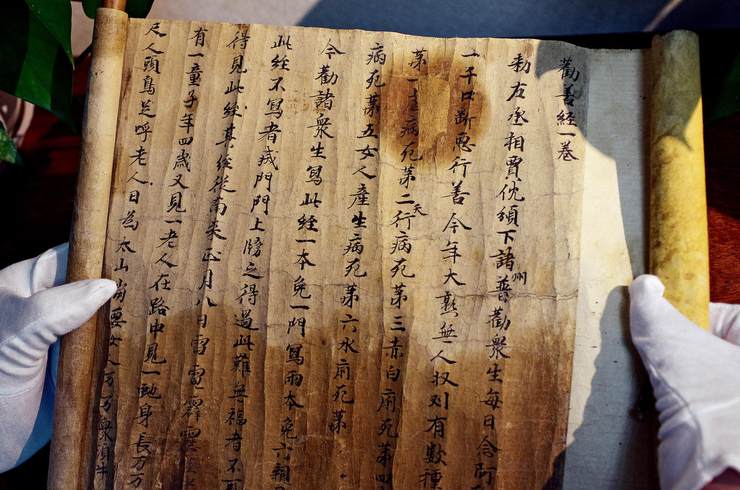 勸善經一卷
勑左丞相賈忱頒下諸州普勸衆生每日念阿
一千口斷惡行善今年大熟無人收刈有數種
苐一虐病死苐二天行病死苐三赤白痢死苐四
病死苐五女人產生病死苐六水痢死苐
今勸諸衆生寫此經一本免一門寫兩本免六親
此經不寫者滅門門上牓之得過此難無福者不可
得見此經其經從南來正月八日雷電霹靂
有一童子年四歲又見一老人在路中見一虵身長万万
尺人頭鳥足呼老人曰為太山崩要女人万万衆須牛